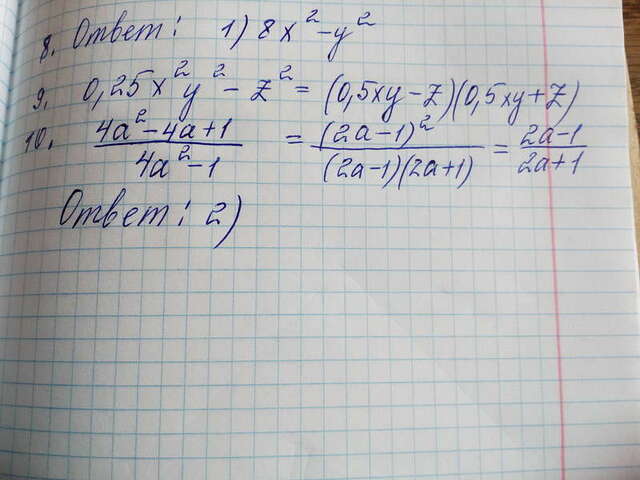 8. Ответ: 1) 8x² - y²
9. 0,25x²y² - z² = (0,5xy - z)(0,5xy + z)
10. (4a² - 4a + 1)/(4a² - 1) = (2a - 1)²/((2a - 1)(2a + 1)) = (2a - 1)/(2a + 1)
Ответ: 2)